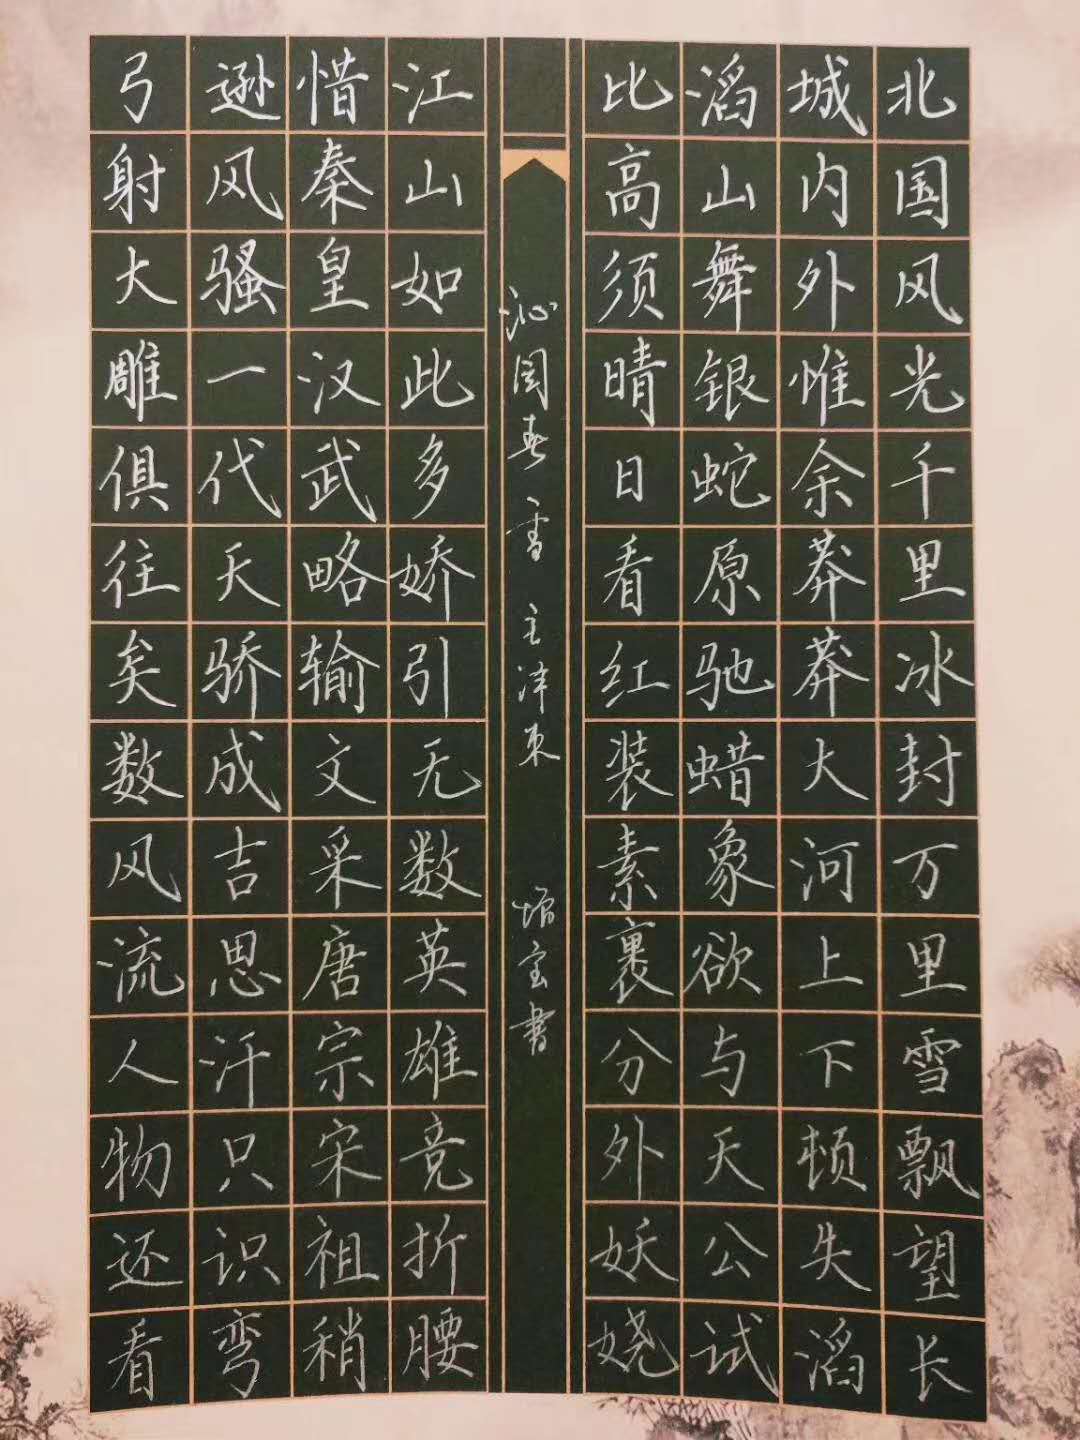 北国风光千里冰封万里雪飘望长
城内外惟余莽莽大河上下顿失滔
滔山舞银蛇原驰蜡象欲与天公试
比高须晴日看红装素裹分外妖娆
沁园春 雪 毛泽东 书
江山如此多娇引无数英雄竞折腰
惜秦皇汉武略输文采唐宗宋祖稍
逊风骚一代天骄成吉思汗只识弯
弓射大雕俱往矣数风流人物还看